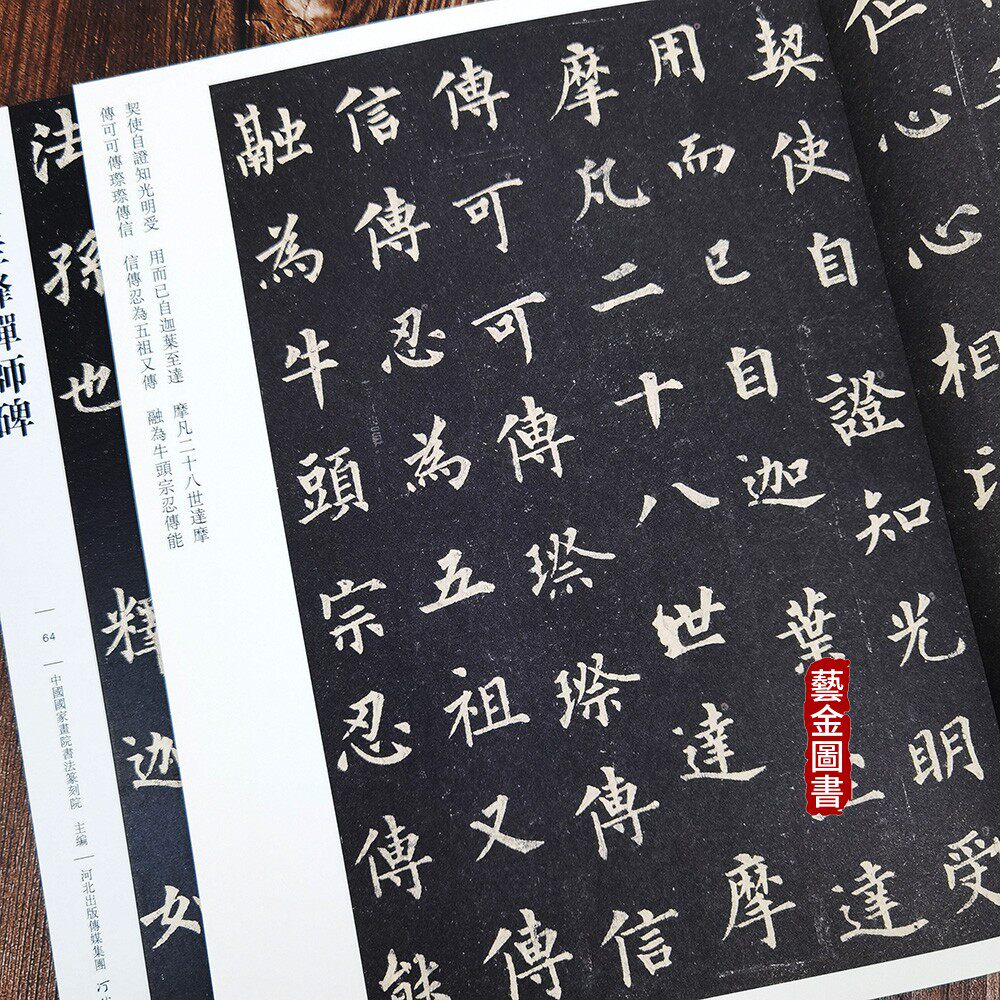 但心心相
契使自證知光明受
用而已自迦葉至達
摩凡二十八世達摩
傳可可傳璨璨傳信
信傳忍為五祖又傳
融為牛頭宗忍傳能
契使自證知光明受
用而已自迦葉至達
摩凡二十八世達摩
傳可可傳璨璨傳信
信傳忍為五祖又傳
融為牛頭宗忍傳能
法孫也
釋迦女
禪師碑
64
中國國家畫院書法篆刻院 主編
河北出版傳媒集團
藝金圖書